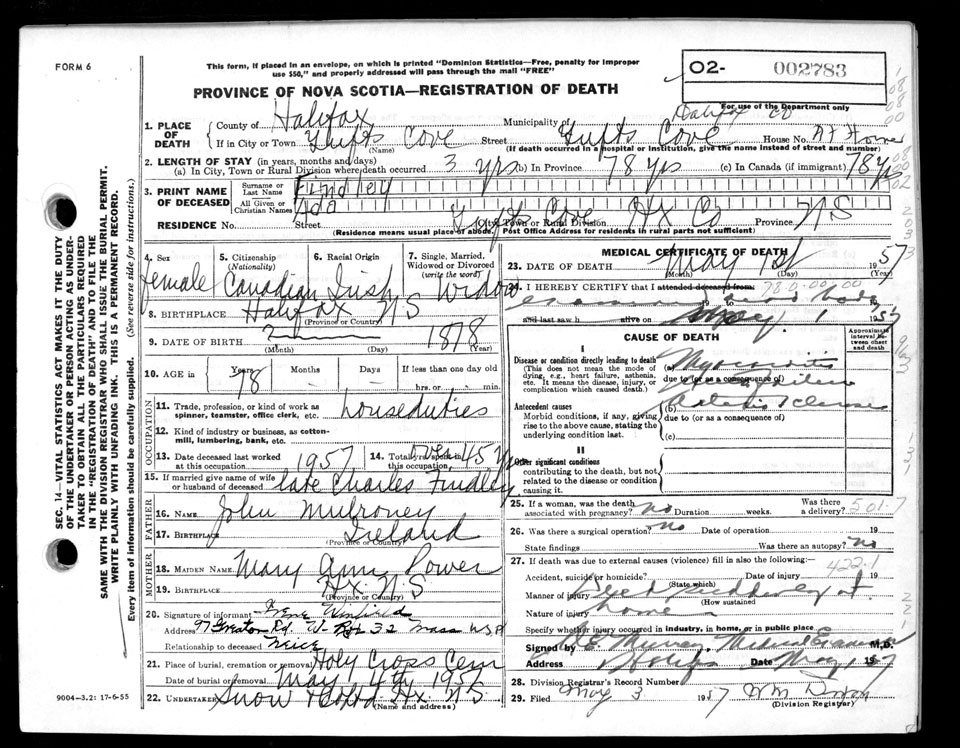 FORM 6
This form, if placed in an envelope, on which is printed "Dominion Statistics—Free, penalty for improper
use $50," and properly addressed will pass through the mail "FREE"
O2- 002783
PROVINCE OF NOVA SCOTIA—REGISTRATION OF DEATH
For use of the Department only
1. PLACE OF DEATH
County of Halifax Municipality of Halifax Co
If in City or Town Tufts Cove Street Tufts Cove House No. At Home
(Name) (If death occurred in a hospital or institution, give the name instead of street and number)
2. LENGTH OF STAY (in years, months and days)
(a) In City, Town or Rural Division where death occurred 3 yrs (b) In Province 78 yrs (c) In Canada (if immigrant) 78 yrs
3. PRINT NAME OF DECEASED
Surname or Last Name Findley
All Given or Christian Names Ada
RESIDENCE No. Street Tufts Cove City, Town or Rural Division Hx Co Province NS
(Residence means usual place of abode. Post Office Address for residents in rural parts not sufficient)
4. Sex female
5. Citizenship (Nationality) Canadian
6. Racial Origin Irish
7. Single, Married, Widowed or Divorced (write the word) Widow
8. BIRTHPLACE Halifax NS
(Province or Country)
9. DATE OF BIRTH 1878
(Month) (Day) (Year)
10. AGE in Years 78 Months Days If less than one day old
hrs. or min.
OCCUPATION
11. Trade, profession, or kind of work as spinner, teamster, office clerk, etc. houseduties
12. Kind of industry or business, as cotton-mill, lumbering, bank, etc.
13. Date deceased last worked at this occupation 1957
14. Total yrs. spent in this occupation 45
15. If married give name of wife or husband of deceased late Charles Findley
FATHER
16. NAME John Mulroney
17. BIRTHPLACE Ireland
(Province or Country)
MOTHER
18. MAIDEN NAME Mary Ann Power
19. BIRTHPLACE Hx NS
(Province or Country)
20. Signature of informant Winfield
Address 97 Rd. W- 32 Mass USA
Relationship to deceased neice
21. Place of burial, cremation or removal Holy Cross Cem
Date of burial or removal May 4th 1957
22. UNDERTAKER Snow & Co Ltd Hx. NS
(Name and address)
MEDICAL CERTIFICATE OF DEATH
23. DATE OF DEATH May 1st 1957
(Month) (Day) (Year)
24. I HEREBY CERTIFY that I attended deceased from: 78 0-00,00
to
and last saw h alive on May 1 1957
CAUSE OF DEATH
Approximate interval between onset and death
I
Disease or condition directly leading to death
(This does not mean the mode of dying, e.g., heart failure, asthenia, etc. It means the disease, injury, or complication which caused death.)
(a) Myocarditis
due to (or as a consequence of)
Antecedent causes
Morbid conditions, if any, giving rise to the above cause, stating the underlying condition last.
(b)
due to (or as a consequence of)
(c)
II
Other significant conditions
contributing to the death, but not related to the disease or condition causing it.
25. If a woman, was the death associated with pregnancy? no Duration weeks. Was there a delivery?
26. Was there a surgical operation? no Date of operation 19
State findings Was there an autopsy? no
27. If death was due to external causes (violence) fill in also the following: 422.1
Accident, suicide or homicide? Date of injury 19
(State which)
Manner of injury Died suddenly at
(How sustained)
Nature of injury home
Specify whether injury occurred in industry, in home, or in public place
Signed by Murray Medical Examiner M.D.
Address Halifax Date May 1 1957
28. Division Registrar's Record Number
29. Filed May 3 1957 Wm
(Division Registrar)
SEC. 14—VITAL STATISTICS ACT MAKES IT THE DUTY
OF THE UNDERTAKER OR PERSON ACTING AS UNDER-
TAKER TO OBTAIN ALL THE PARTICULARS REQUIRED
IN THE "REGISTRATION OF DEATH" AND TO FILE THE
SAME WITH THE DIVISION REGISTRAR WHO SHALL ISSUE THE BURIAL PERMIT.
WRITE PLAINLY WITH UNFADING INK. THIS IS A PERMANENT RECORD.
Every item of information should be carefully supplied. (See reverse side for instructions.)
9004-3.2: 17-6-55